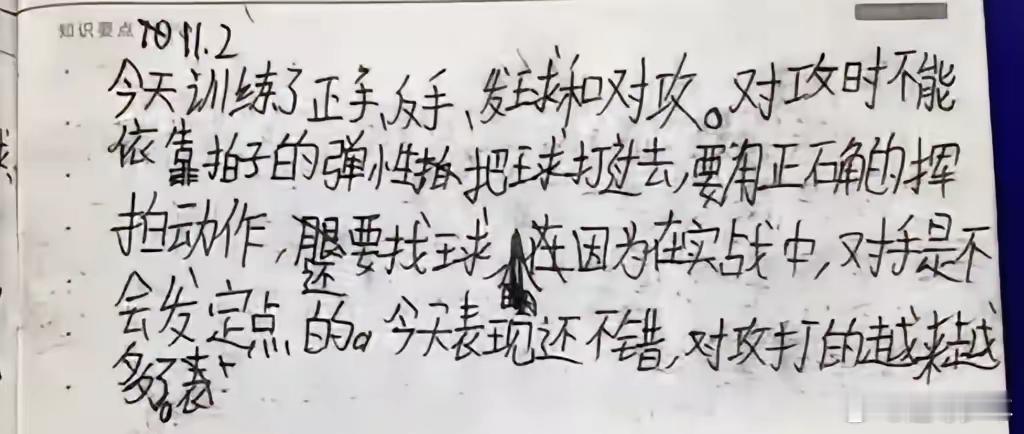 知识要点
10 11.2
今天训练了正手、反手、发球和对攻。对攻时不能
依靠拍子的弹性把球打过去,要用正确的挥
拍动作,腿还要找球,因为在实战中,对手是不
会发定点的。今天表现还不错,对攻打的越来越
多了。